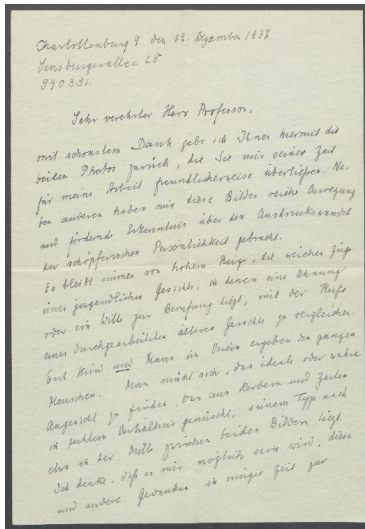 Charlottenburg 9 den 12. Dezember 1937
Sensburgerallee 28
99033.
Sehr verehrter Herr Professor,
mit schönstem Dank gebe ich Ihnen hiermit die
beiden Photos zurück, die Sie mir seiner Zeit
für meine Arbeit freundlicherweise überließen. Ne-
ben anderen haben mir diese Bilder reiche Anregung
und fördernde Erkenntnis über den Ausdruckswandel
der schöpferischen Persönlichkeit gebracht.
Es bleibt immer von hohem Reiz, die weichen Züge
eines jugendlichen Gesichts, in denen eine Ahnung
oder ein Wille zur Berufung liegt, mit der Reife
eines durchgearbeiteten älteren Gesichts zu vergleichen.
Erst Kind und Mann im Verein ergeben den ganzen
Menschen. Man müht sich, das ideale oder wahre
Angesicht zu finden, das aus Herbem und Zartem
in rechtem Verhältnis gemischt, seinem Typ nach
etwa in der Mitte zwischen beiden Bildern liegt.
Ich denke, daß es mir möglich sein wird, diese
und andere Gedanken in einiger Zeit zur